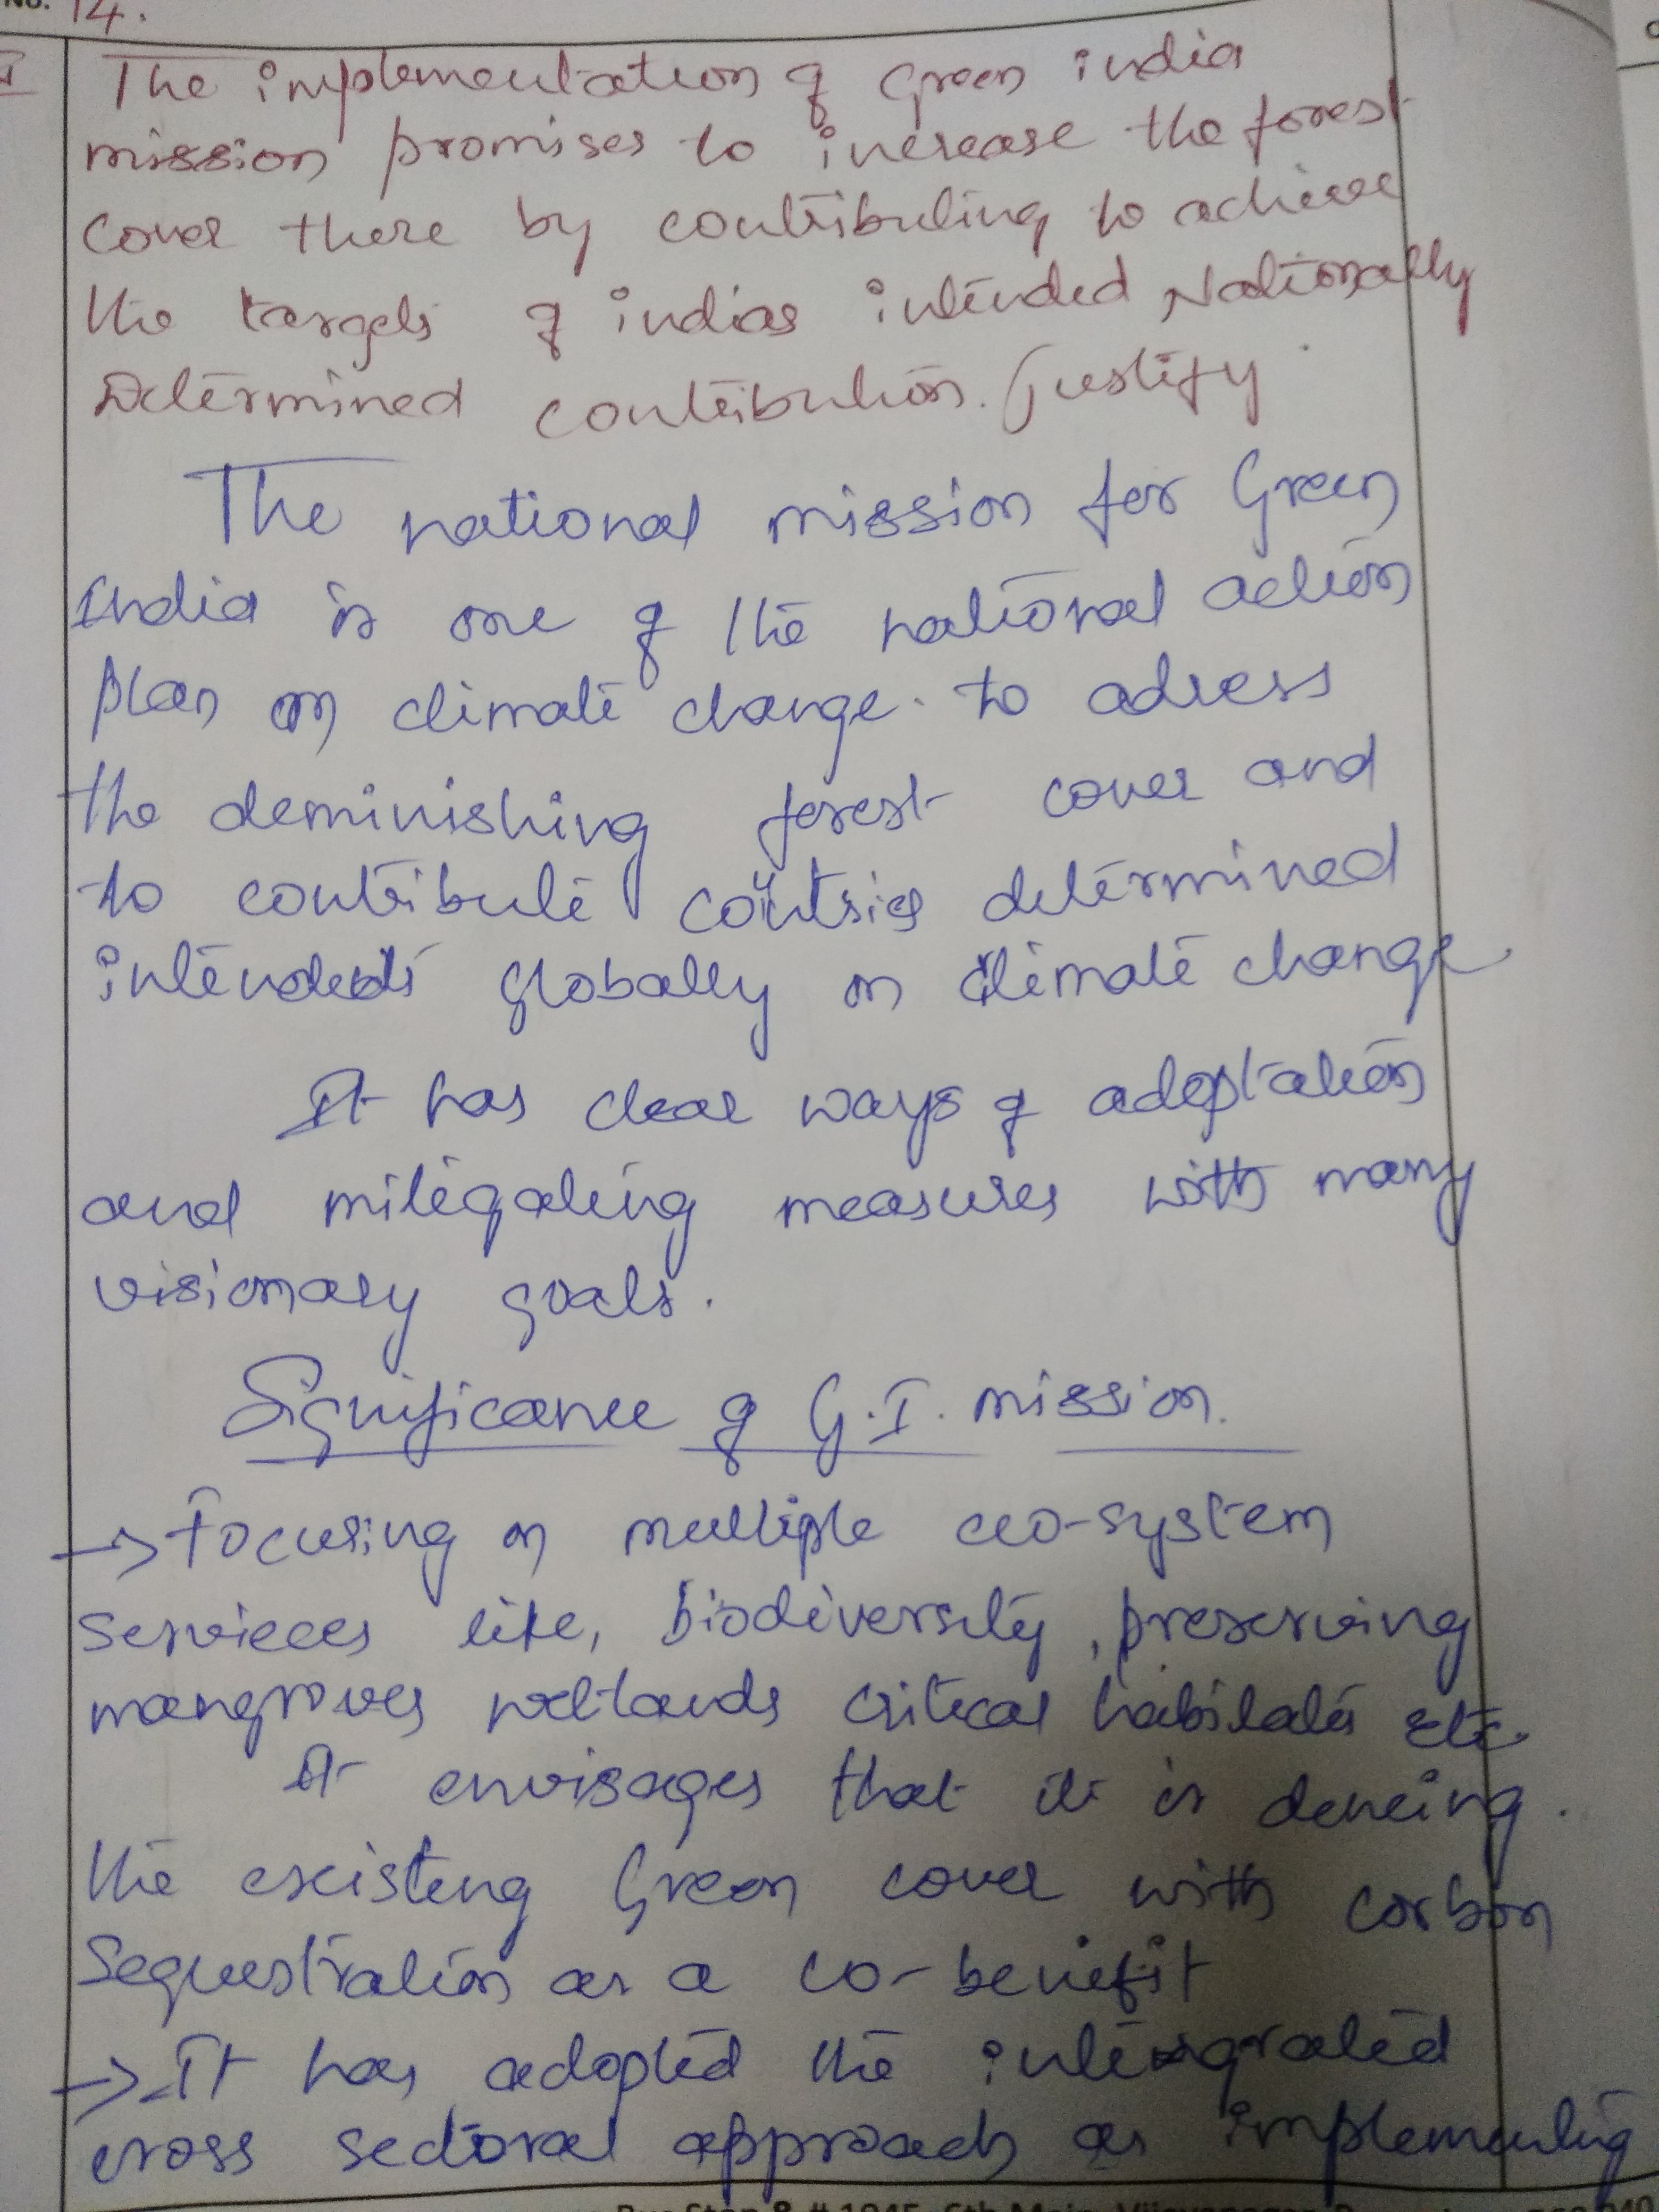 No. 14.
The implementation of Green india
mission promises to increase the forest
cover there by contributing to achieve
the targets of indias intended Nationally
Determined contribution. Justify
The national mission for Green
India is one of the national action
plan on climate change. to adress
the deminishing forest cover and
to contribute countries determined
intended globally on climate change
It has clear ways of adoptation
and mitigating measures with many
visionary goals.
Significance of G.I. mission.
→ Focusing on multiple eco-system
services like, biodiversity, preserving
mangroves wetlands critical habitats etc.
It envisages that it is dencing.
the existing Green cover with carbon
Sequestration as a co-benefit
→ It has adopted the intergrated
cross sectoral approach as implementing